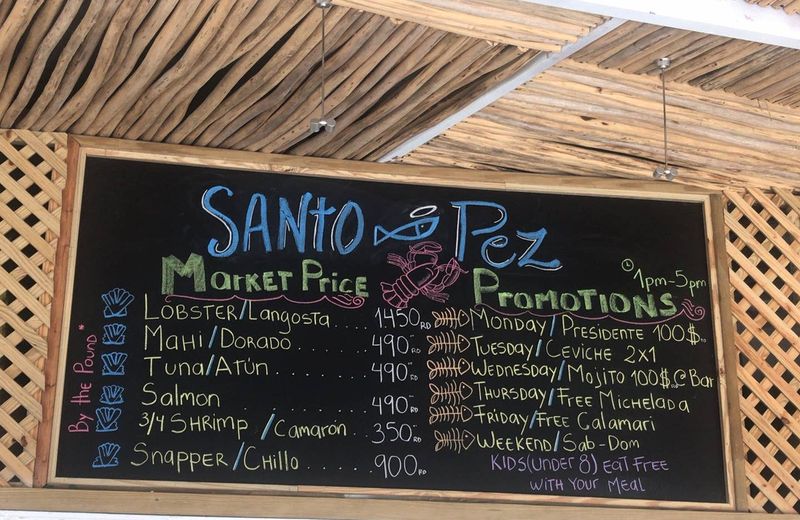 SANtO PEZ
MARKET PRICE
By the Pound *
LOBSTER/LANGOSTA .... 1450 RD
MAHI/DORADO ....... 490 RD
TUNA/ATÚN ......... 490 RD
SALMON ......... 490 RD
3/4 SHRIMP / CAMARON .. 350 RD
SNAPPER/CHILLO ...... 900 RD
PROMOTIONS
1pm-5pm
MONDAY/PRESIDENTE 100$
TUESDAY/CEVICHE 2X1
WEDNESDAY/MOJITO 100$ @ BAR
THURSDAY/FREE MICHELADA
FRIDAY/FREE CALAMARI
WEEKEND/SAB-DOM
KIDS(UNDER 8) EAT FREE
WITH YOUR MEAL